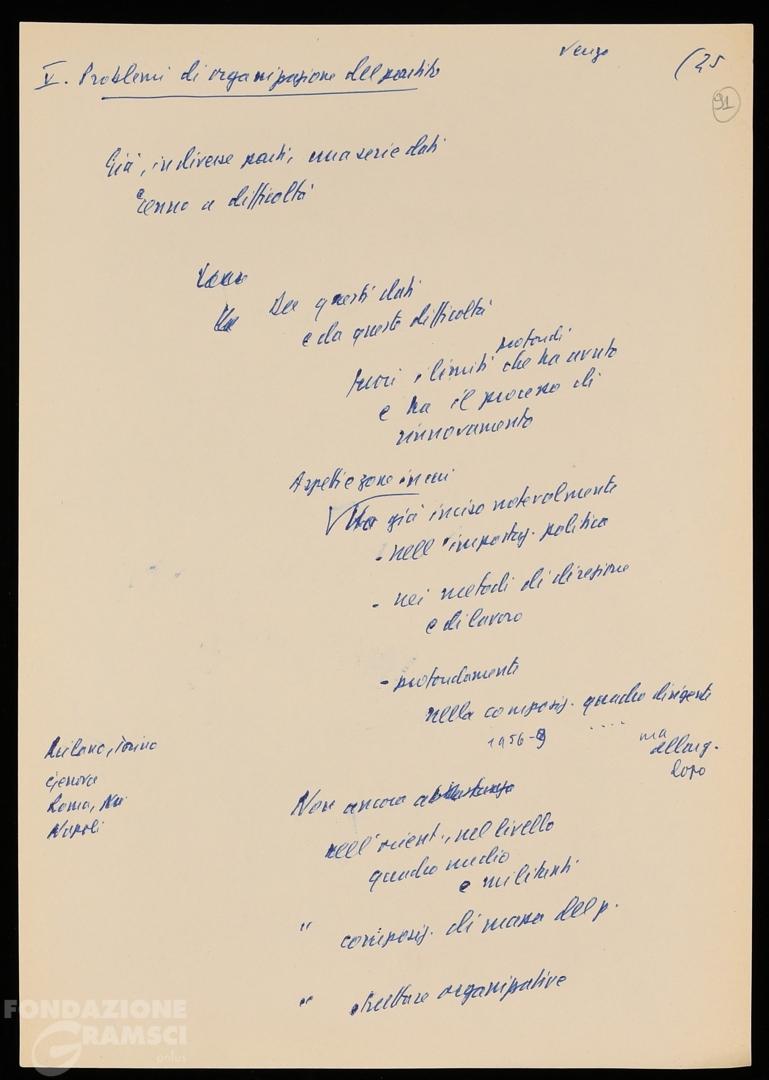 Vengo
(25
91
V. Problemi di organizzazione del partito
Già, in diverse parti, una serie dati
Cenno a difficoltà
Da questi dati
e da queste difficoltà
fuori i limiti profondi che ha avuto
e ha il processo di
rinnovamento
Aspetti e zone in cui
Ha già inciso notevolmente
- nell'impostaz. politica
- nei metodi di direzione
e di lavoro
- profondamente
nella composiz. quadro dirigente
1956-9 .... ma
allarg.
dopo
Milano, Torino
Genova
Roma,
Napoli
Non ancora abbastanza
nell'orient., nel livello
quadro medio
e militanti
" composiz. di massa del p.
" strutture organizzative
FONDAZIONE
GRAMSCI
onlus